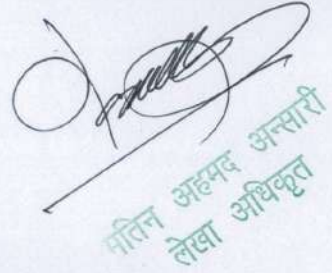 मतिन अहमद अन्सारी
लेखा अधिकृत